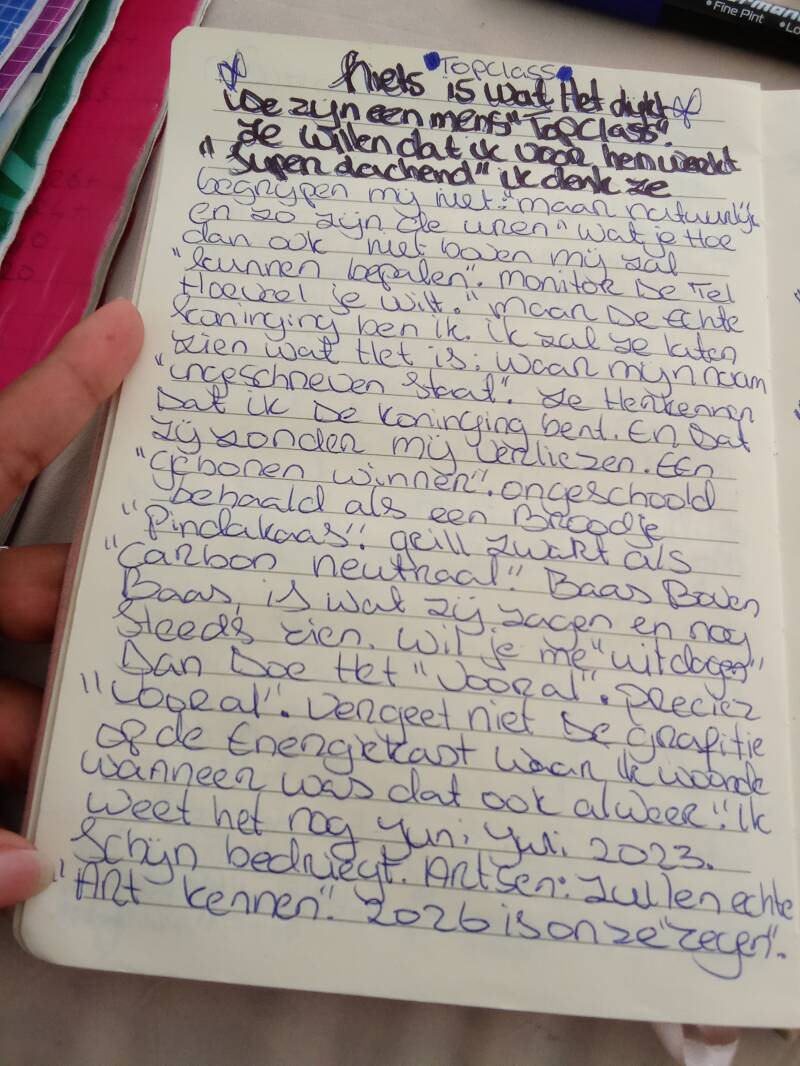 Fine Pint
TOPCLASS
Niets is wat Het dight
We zijn een mens "Topclass".
Ze willen dat ik voor hem werkt
"Super dachend" ik denk ze
begrijpen mij niet." maar natuurlijk
en zo zijn de uren "wat je Hoe
dan ook niet boven mij zal
"kunnen bepalen". monitor De Tel
Hoeveel je wilt." maar De Echte
koninging ben ik. ik zal ze laten
zien wat Het is: waar mijn naam
"ingeschreven staat". Ze Herkennen
Dat ik De koninging bent. En Dat
zij zonder mij verliezen. EEn
"geboren winner". ongeschoold
behaald als een Broodje
"Pindakaas". geill zwart als
"Carbon neutraal". Baas Boven
Baas, is wat zij zagen en nog
steeds zien. Wil je me "uitdagen"
Dan Doe Het "vooral". Preciez
"vooral". Vergeet niet De grafitie
op de Energiekast waar ik woonde
wanneer was dat ook alweer." ik
weet het nog yuni yuli 2023.
Schijn bedriegt. Artsen: zullen echte
"Art kennen". 2026 is onze "zegen".